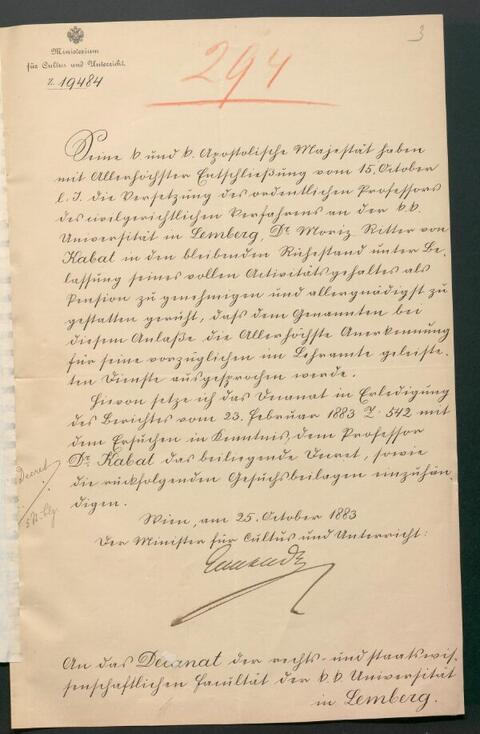 3
Ministerium
für Cultus und Unterricht.
Z. 19484
294
Seine k. und k. Apostolische Majestät haben
mit Allerhöchster Entschließung vom 15. October
l. J. die Versetzung des ordentlichen Professors
des civilgerichtlichen Verfahrens an der k. k.
Universität in Lemberg, Dr. Moriz Ritter von
Kabat in den bleibenden Ruhestand unter Be-
lassung seines vollen Activitätsgehaltes als
Pension zu genehmigen und allergnädigst zu
gestatten geruht, daß dem Genannten bei
diesem Anlaße die Allerhöchste Anerkennung
für seine vorzüglichen im Lehramte geleiste-
ten Dienste ausgesprochen werde.
Hievon setze ich das Decanat in Erledigung
des Berichtes vom 23. Februar 1883 Z. 542 mit
dem Ersuchen in Kenntnis, dem Professor
Dr. Kabat das beiliegende Decret, sowie
die rückfolgenden Gesuchsbeilagen einzuhän-
digen.
Decret
Wien, am 25. October 1883
Der Minister für Cultus und Unterricht:
An das Decanat der rechts- und staatswis-
senschaftlichen Facultät der k. k. Universität
in Lemberg.